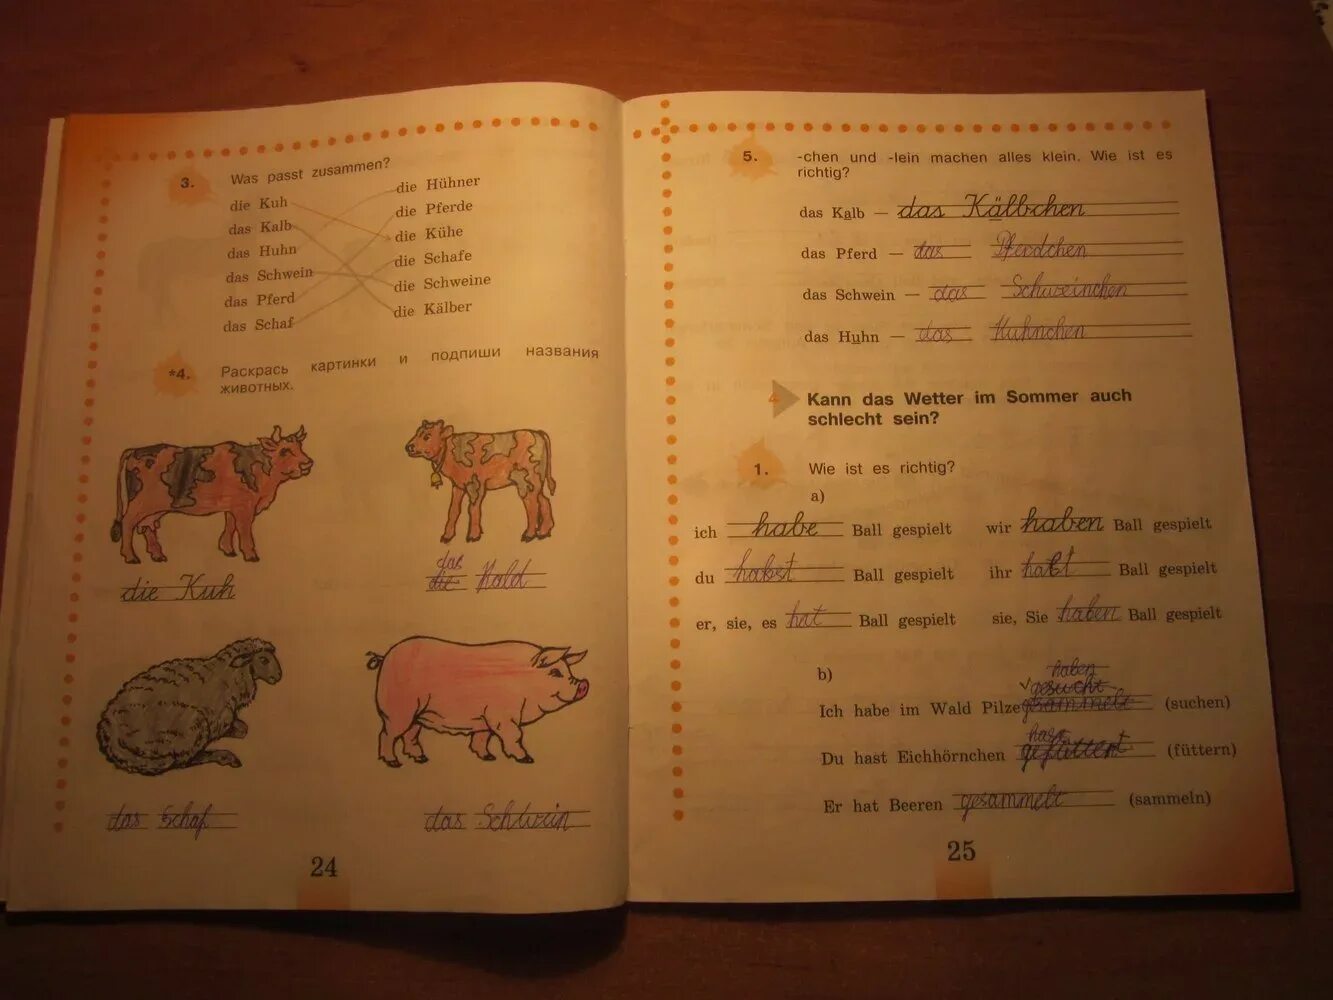 3. Was passt zusammen?
die Kuh
das Kalb
das Huhn
das Schwein
das Pferd
das Schaf
die Hühner
die Pferde
die Kühe
die Schafe
die Schweine
die Kälber
*4. Раскрась картинки и подпиши названия
животных.
die Kuh
das
die Kald
das Schaf
das Schwein
24
5. -chen und -lein machen alles klein. Wie ist es
richtig?
das Kalb — das Kälbchen
das Pferd — das Pferdchen
das Schwein — das Schweinchen
das Huhn — das
4 Kann das Wetter im Sommer auch
schlecht sein?
1. Wie ist es richtig?
a)
ich habe Ball gespielt wir haben Ball gespielt
du habst Ball gespielt ihr Ball gespielt
er, sie, es hat Ball gespielt sie, Sie haben Ball gespielt
b)
haben
gesucht
Ich habe im Wald Pilze gesammelt (suchen)
Du hast Eichhörnchen gefüttert (füttern)
Er hat Beeren gesammelt (sammeln)
25